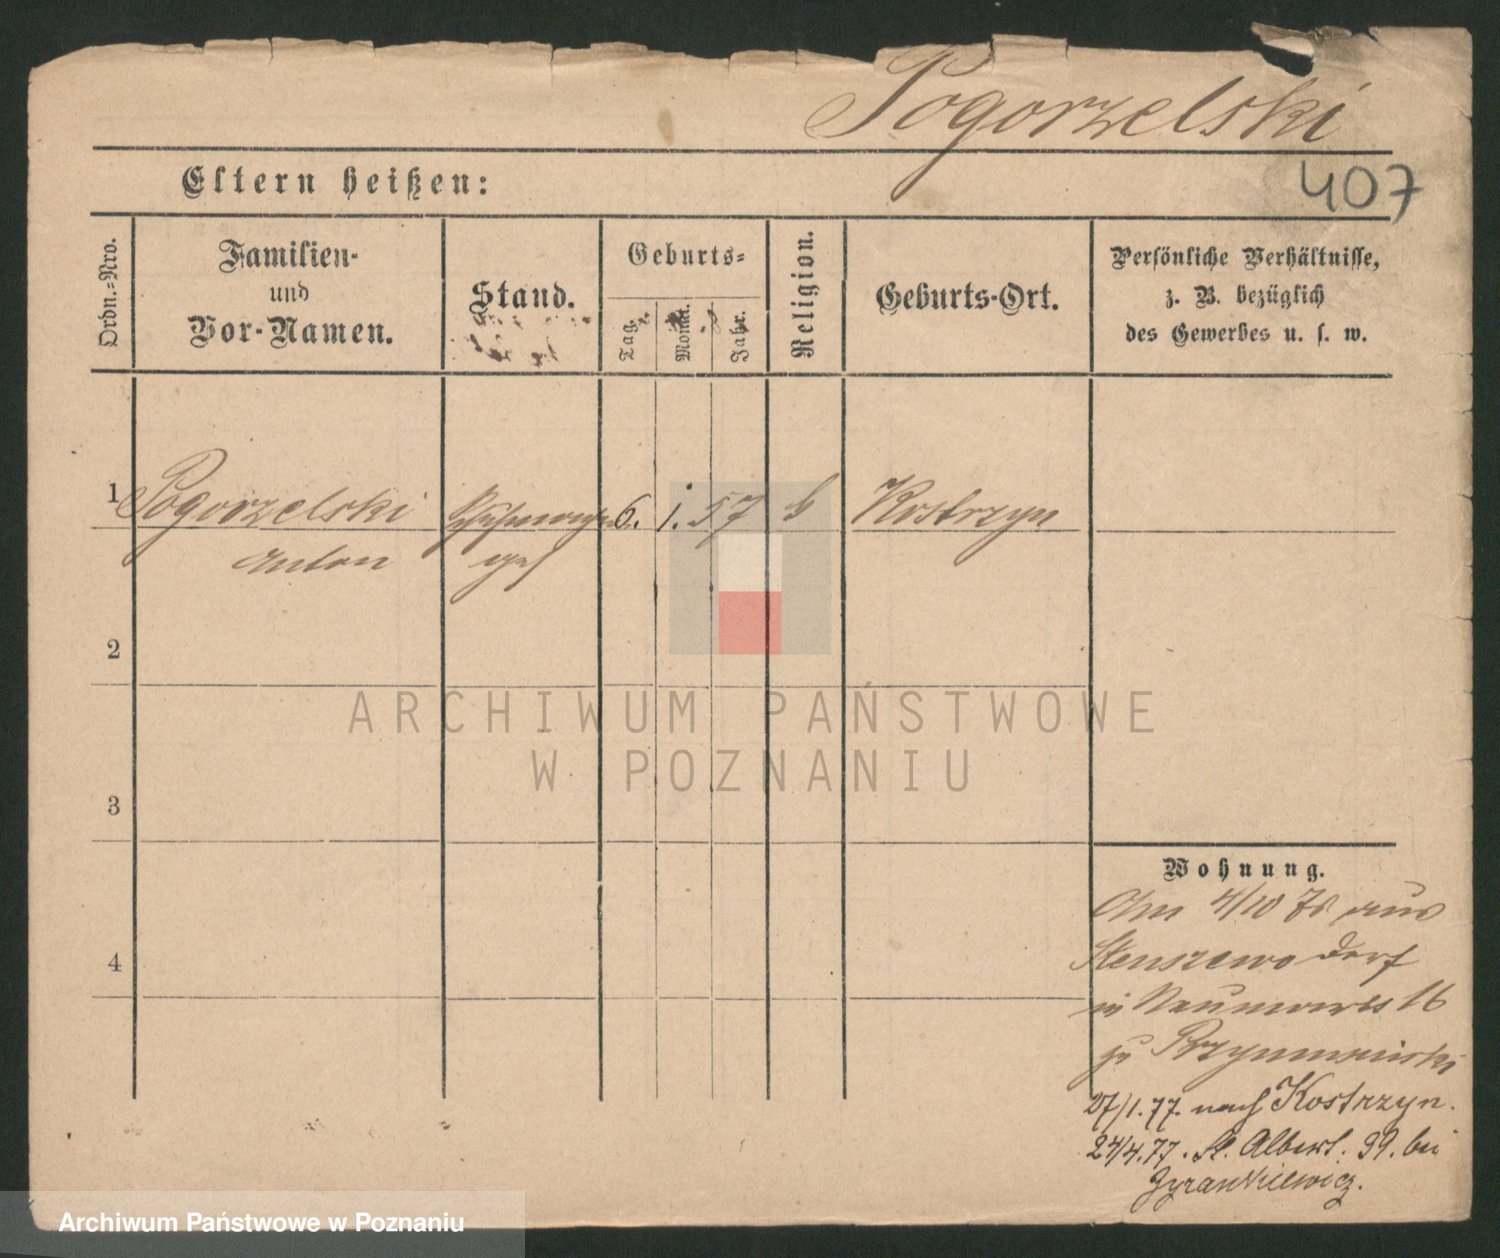 Pogorzelski
407
Eltern heißen:
Ordn.-Nro.
Familien-
und
Vor-Namen.
Stand.
Geburts-
Tag.
Monat.
Jahr.
Religion.
Geburts-Ort.
Persönliche Verhältnisse,
z. B. bezüglich
des Gewerbes u. s. w.
1 Pogorzelski 6. 1. 57 Kostrzyn
Anton
2
3
4
Wohnung.
Am 4/10 76 aus
Stenszewo Dorf
in 16
zu
27/1.77. nach Kostrzyn.
24/4.77. St. Albert. 39. bei
ARCHIWUM PAŃSTWOWE
W POZNANIU
Archiwum Państwowe w Poznaniu